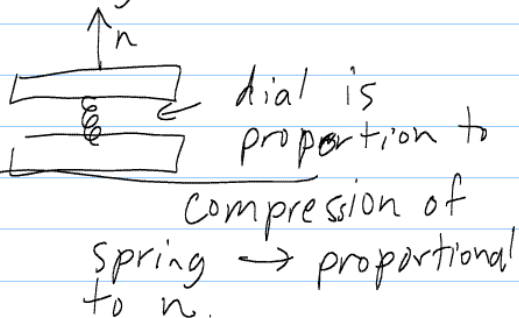 n
dial is
proportion to
compression of
spring → proportional
to n.